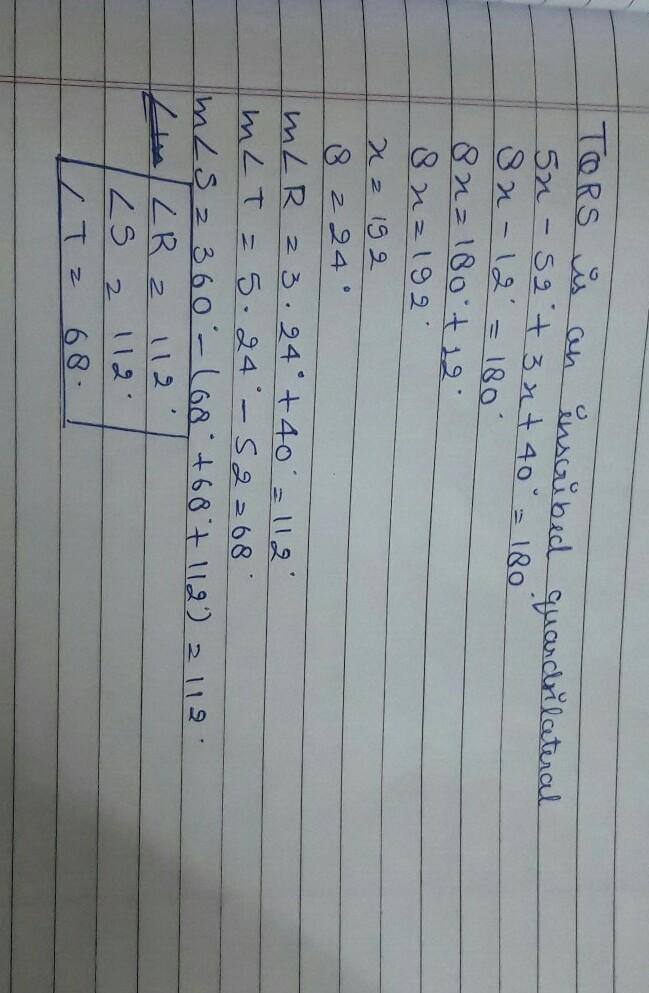 TQRS is an inscribed quardrilateral
5x - 52° + 3x + 40° = 180°
8x - 12° = 180°
8x = 180° + 12°
8x = 192°
x = 192
8 = 24°
m∠R = 3·24° + 40° = 112°
m∠T = 5·24° - 52 = 68°
m∠S = 360° - (68° + 68° + 112°) = 112°
∠R = 112°
∠S = 112°
∠T = 68°